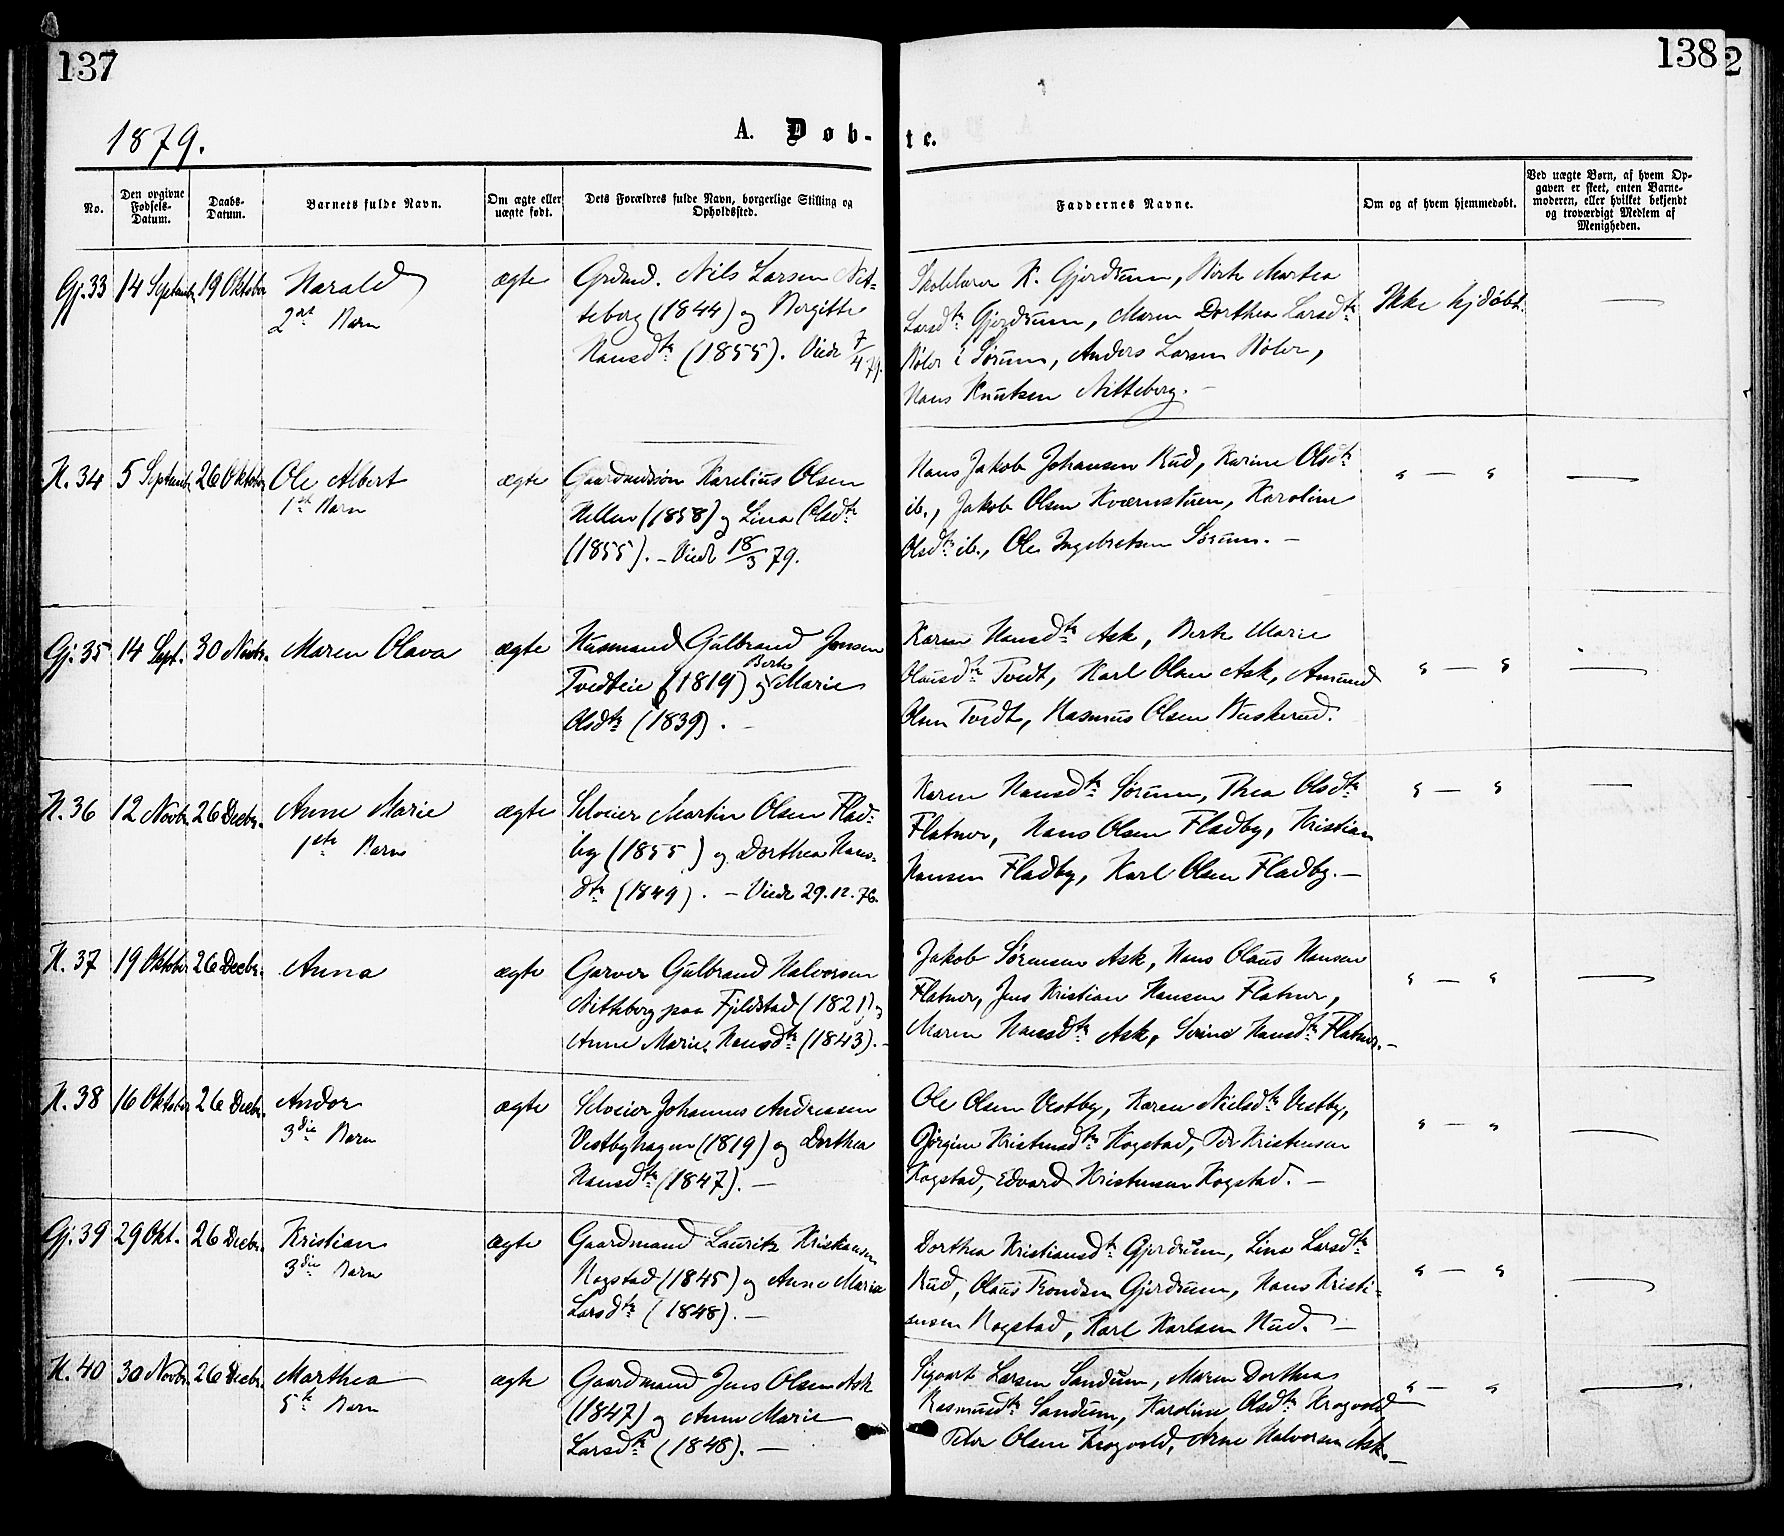 137
138
2
1879.
A. Døb-
te.
No.
Den opgivne Fødsels-Datum.
Daabs-Datum.
Barnets fulde Navn.
Om ægte eller uægte født.
Dets Forældres fulde Navn, borgerlige Stilling og Opholdssted.
Faddernes Navne.
Om og af hvem hjemmedøbt.
Ved uægte Børn, af hvem Op-
gaven er skeet, enten Barne-
moderen, eller hvilket bekjendt
og troværdigt Medlem af
Menigheden.
Gj. 33 14 Septembr 19 Oktober Harald ægte
2det Barn
Grdmd. Nils Larsen Nit-
teberg (1844) og Bergitte
Hansdtr (1855). Viede 7/4 79.
Skolelærer K. Gjerdrum, Birte Martea
Larsdtr Gjerdrum, Maren Dorthea Larsdtr
Bøler i Sørum, Anders Larsen Bøler,
Hans Knutsen Nitteberg. —
Ikke hjdøbt. —
H. 34 5 Septembr 26 Oktober Ole Albert ægte
1ste Barn
Gaardmandssøn Karelius Olsen
Hellen (1858) og Lina Olsdtr
(1855). — Viede 18/3 79.
Hans Jakob Johansen Rud, Karine Olsdtr
ib., Jakob Olsen Kværnstuen, Karoline
Olsdtr ib., Ole Ingebretsen Sørum. —
" — " —
Gj. 35 14 Sept. 30 Novbr. Maren Olava ægte
Husmand Gulbrand Jensen
Tvedteie (1819) og Berte Marie
Olsdtr (1839). —
Karen Hansdtr Ask, Berte Marie
Olausdtr Tvedt, Karl Olsen Ask, Amund
Olsen Tvedt, Rasmus Olsen Buskerud.
" — " —
H. 36 12 Novbr. 26 Decbr. Anne Marie ægte
1ste Barn
Selveier Martin Olsen Flad-
by (1855) og Dorthea Hans-
dtr (1849). — Viede 29.12.76.
Karen Hansdtr Sørum, Thea Olsdtr
Flatner, Hans Olsen Fladby, Kristian
Hansen Fladby, Karl Olsen Fladby. —
" — " —
H. 37 19 Oktober 26 Decbr. Anna ægte
Garver Gulbrand Halvorsen
Nitteberg paa Fjeldstad (1821) og
Anne Marie Hansdtr (1843). —
Jakob Sørensen Ask, Hans Olaus Hansen
Flatner, Jens Kristian Hansen Flatner,
Maren Hansdtr Ask, Hansdtr Flatner. —
" — " —
H. 38 16 Oktober 26 Decbr. Andor ægte
3die Barn
Selveier Johannes Andreasen
Vestbyhagen (1819) og Dorthea
Hansdtr (1847). —
Ole Olsen Vestby, Karen Nielsdtr Vestby,
Jørgine Kristensdtr Kogstad, Per Kristensen
Kogstad, Edvard Kristensen Kogstad. —
" — " —
Gj. 39 29 Okt. 26 Decbr. Kristian ægte
3die Barn
Gaardmand Lauritz Kristiansen
Rogstad (1845) og Anne Marie
Larsdtr (1848). —
Dorthea Kristiansdtr Gjerdrum, Lina Larsdtr
Rud, Olaus Trondsen Gjerdrum, Hans Kristi-
ansen Rogstad, Karl Karlsen Rud. —
" — " —
H. 40 30 Novbr. 26 Decbr. Marthea ægte
5te Barn
Gaardmand Jens Olsen Ask
(1847) og Anne Marie
Larsdtr (1848). —
Sigvart Larsen Sandum, Maren Dorthea
Rasmusdtr Sandum, Karoline Olsdtr Krogvold,
Peter Olsen Krogvold, Arne Halvorsen Ask. —
" — " —